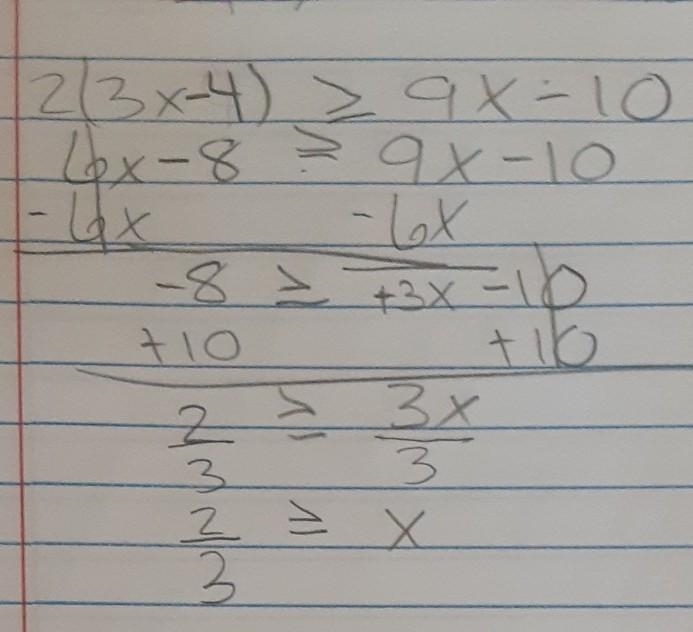 2(3x-4) ≥ 9x-10
6x-8 ≥ 9x-10
-6x -6x
-8 ≥ +3x-10
+10 +10
2/3 ≥ 3x/3
2/3 ≥ x